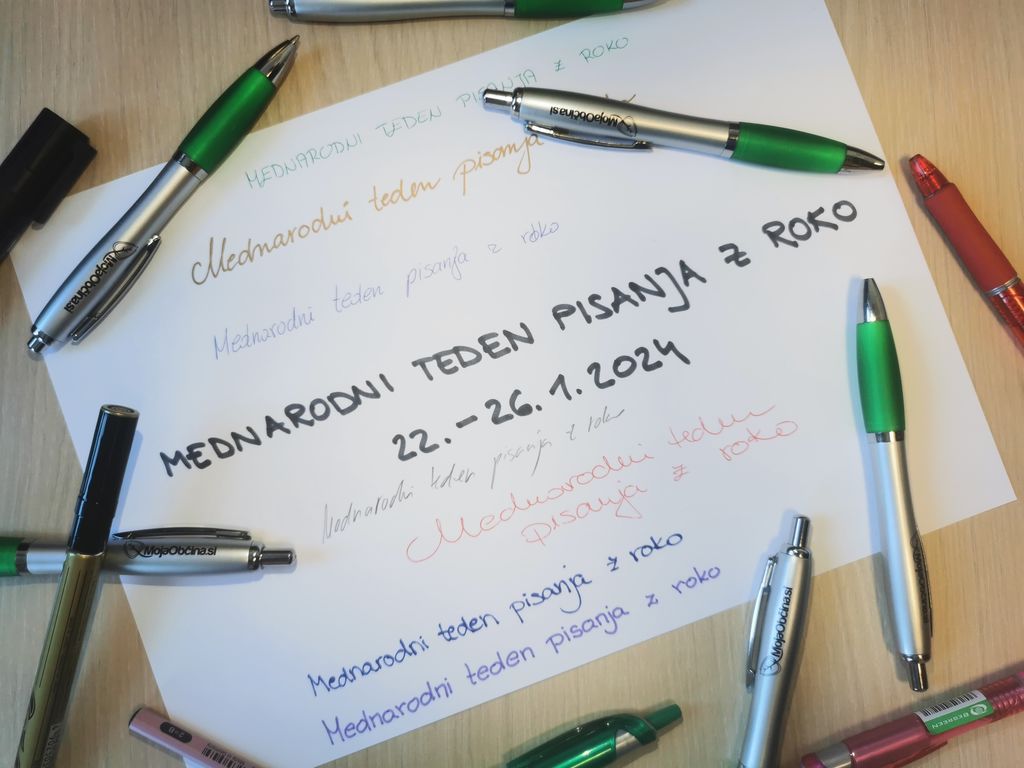 MEDNARODNI TEDEN PISANJA Z ROKO
Mednarodni teden pisanja
Mednarodni teden pisanja z roko
MEDNARODNI TEDEN PISANJA Z ROKO
22. - 26. 1. 2024
Mednarodni teden pisanja z roko
Mednarodni teden
pisanja z roko
Mednarodni teden pisanja z roko
Mednarodni teden pisanja z roko
MojaObčina.si
MojaObčina.si
MojaObčina.si
MojaObčina.si
BEGREEN